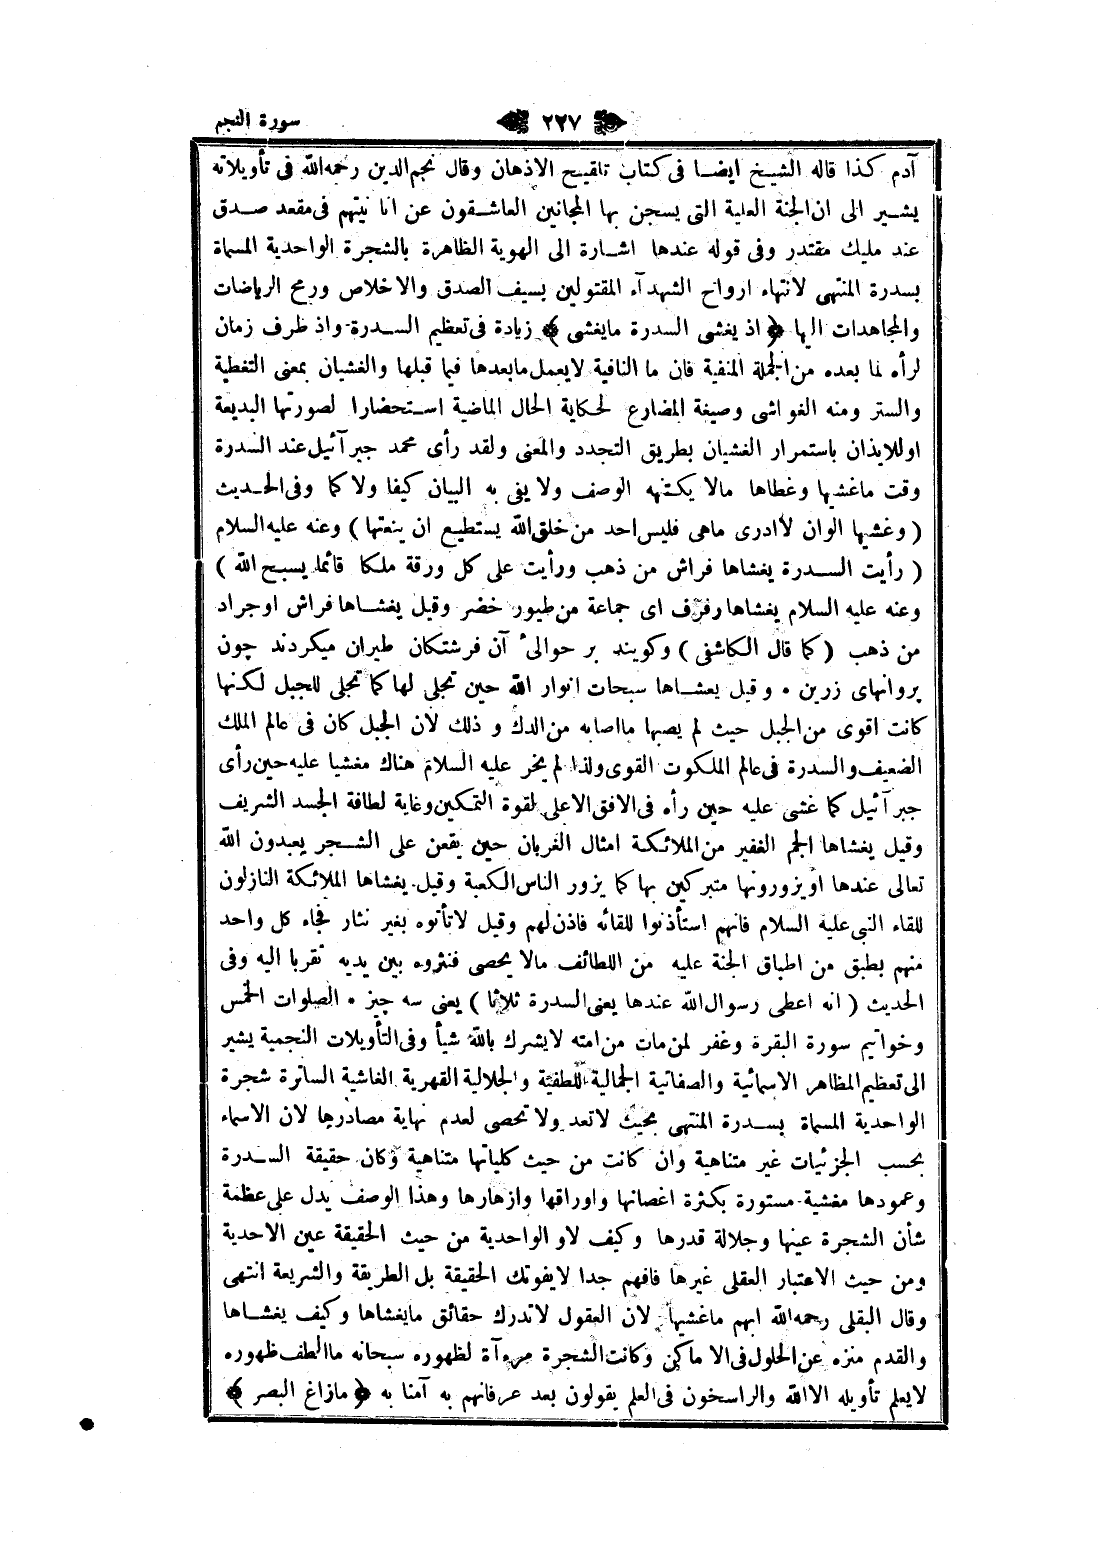 سورة النجم
٢٢٧
آدم كذا قاله الشيخ ايضا فى كتاب تلقيح الاذهان وقال نجم الدين رحمه الله فى تأويلاته
يشير الى ان الجنة العلية التى يسجن بها المجانين العاشقون عن انا نيتهم فى مقعد صدق
عند مليك مقتدر وفى قوله عندها اشارة الى الهوية الظاهرة بالشجرة الواحدية المسماة
بسدرة المنتهى لانتهاء ارواح الشهدآء المقتولين بسيف الصدق والاخلاص ورمح الرياضات
والمجاهدات اليها ﴿ اذ يغشى السدرة مايغشى ﴾ زيادة فى تعظيم السدرة واذ ظرف زمان
لرأه لما بعده من الجملة المنفية فان ما النافية لايعمل مابعدها فيما قبلها والغشيان بمعنى التغطية
والستر ومنه الغواشى وصيغة المضارع لحكاية الحال الماضية استحضارا لصورتها البديعة
او للايذان باستمرار الغشيان بطريق التجدد والمعنى ولقد رأى محمد جبرآئيل عند السدرة
وقت ماغشيها وغطاها مالا يكتنهه الوصف ولا يفى به البيان كيفا ولا كما وفى الحديث
( وغشيها الوان لاأدرى ماهى فليس احد من خلق الله يستطيع ان ينعتها ) وعنه عليه السلام
( رأيت السدرة يغشاها فراش من ذهب ورأيت على كل ورقة ملكا قائما يسبح الله )
وعنه عليه السلام يغشاها رفرف اى جماعة من طيور خضر وقيل يغشاها فراش او جراد
من ذهب ( كما قال الكاشفى ) وكويند بر حوالئ آن فرشتكان طيران ميكردند چون
پروانهاى زرين • وقيل يعشاها سبحات انوار الله حين تجلى لها كما تجلى للجبل لكنها
كانت اقوى من الجبل حيث لم يصبها مااصابه من الدك و ذلك لان الجبل كان فى عالم الملك
الضعيف والسدرة فى عالم الملكوت القوى ولذا لم يخر عليه السلام هناك مغشيا عليه حين رأى
جبرآئيل كما غشى عليه حين رأه فى الافق الاعلى لقوة التمكين وغاية لطافة الجسد الشريف
وقيل يغشاها الجم الغفير من الملائكة امثال الغربان حين يقعن على الشجر يعبدون الله
تعالى عندها او يزورونها متبركين بها كما يزور الناس الكعبة وقيل يغشاها الملائكة النازلون
للقاء النبى عليه السلام فانهم استأذنوا للقائه فاذن لهم وقيل لاتأتوه بغير نثار فجاء كل واحد
منهم بطبق من اطباق الجنة عليه من اللطائف مالا يحصى فنثروه بين يديه تقربا اليه وفى
الحديث ( انه اعطى رسوال الله عندها يعنى السدرة ثلاثا ) يعنى سه چيز • الصلوات الخمس
وخواتيم سورة البقرة وغفر لمن مات من امته لايشرك بالله شيأ وفى التأويلات النجمية يشير
الى تعظيم المظاهر الاسمائية والصفاتية الجمالية اللطفية والجلالية القهرية الغاشية الساترة شجرة
الواحدية المسماة بسدرة المنتهى بحيث لاتعد ولا تحصى لعدم نهاية مصادرها لان الاسماء
بحسب الجزئيات غير متناهية وان كانت من حيث كلياتها متناهية وكان حقيقة السدرة
وعمودها مغشية مستورة بكثرة اغصانها واوراقها وازهارها وهذا الوصف يدل على عظمة
شأن الشجرة عينها وجلالة قدرها وكيف لاو الواحدية من حيث الحقيقة عين الاحدية
ومن حيث الاعتبار العقلى غيرها فافهم جدا لايفوتك الحقيقة بل الطريقة والشريعة انتهى
وقال البقلى رحمه الله ابهم ماغشيها لان العقول لاتدرك حقائق مايغشاها وكيف يغشاها
والقدم منزه عن الحلول فى الا ماكن وكانت الشجرة مرءآة لظهوره سبحانه ماالطف ظهوره
لايعلم تأويله الا الله والراسخون فى العلم يقولون بعد عرفانهم به آمنا به ﴿ مازاغ البصر ﴾